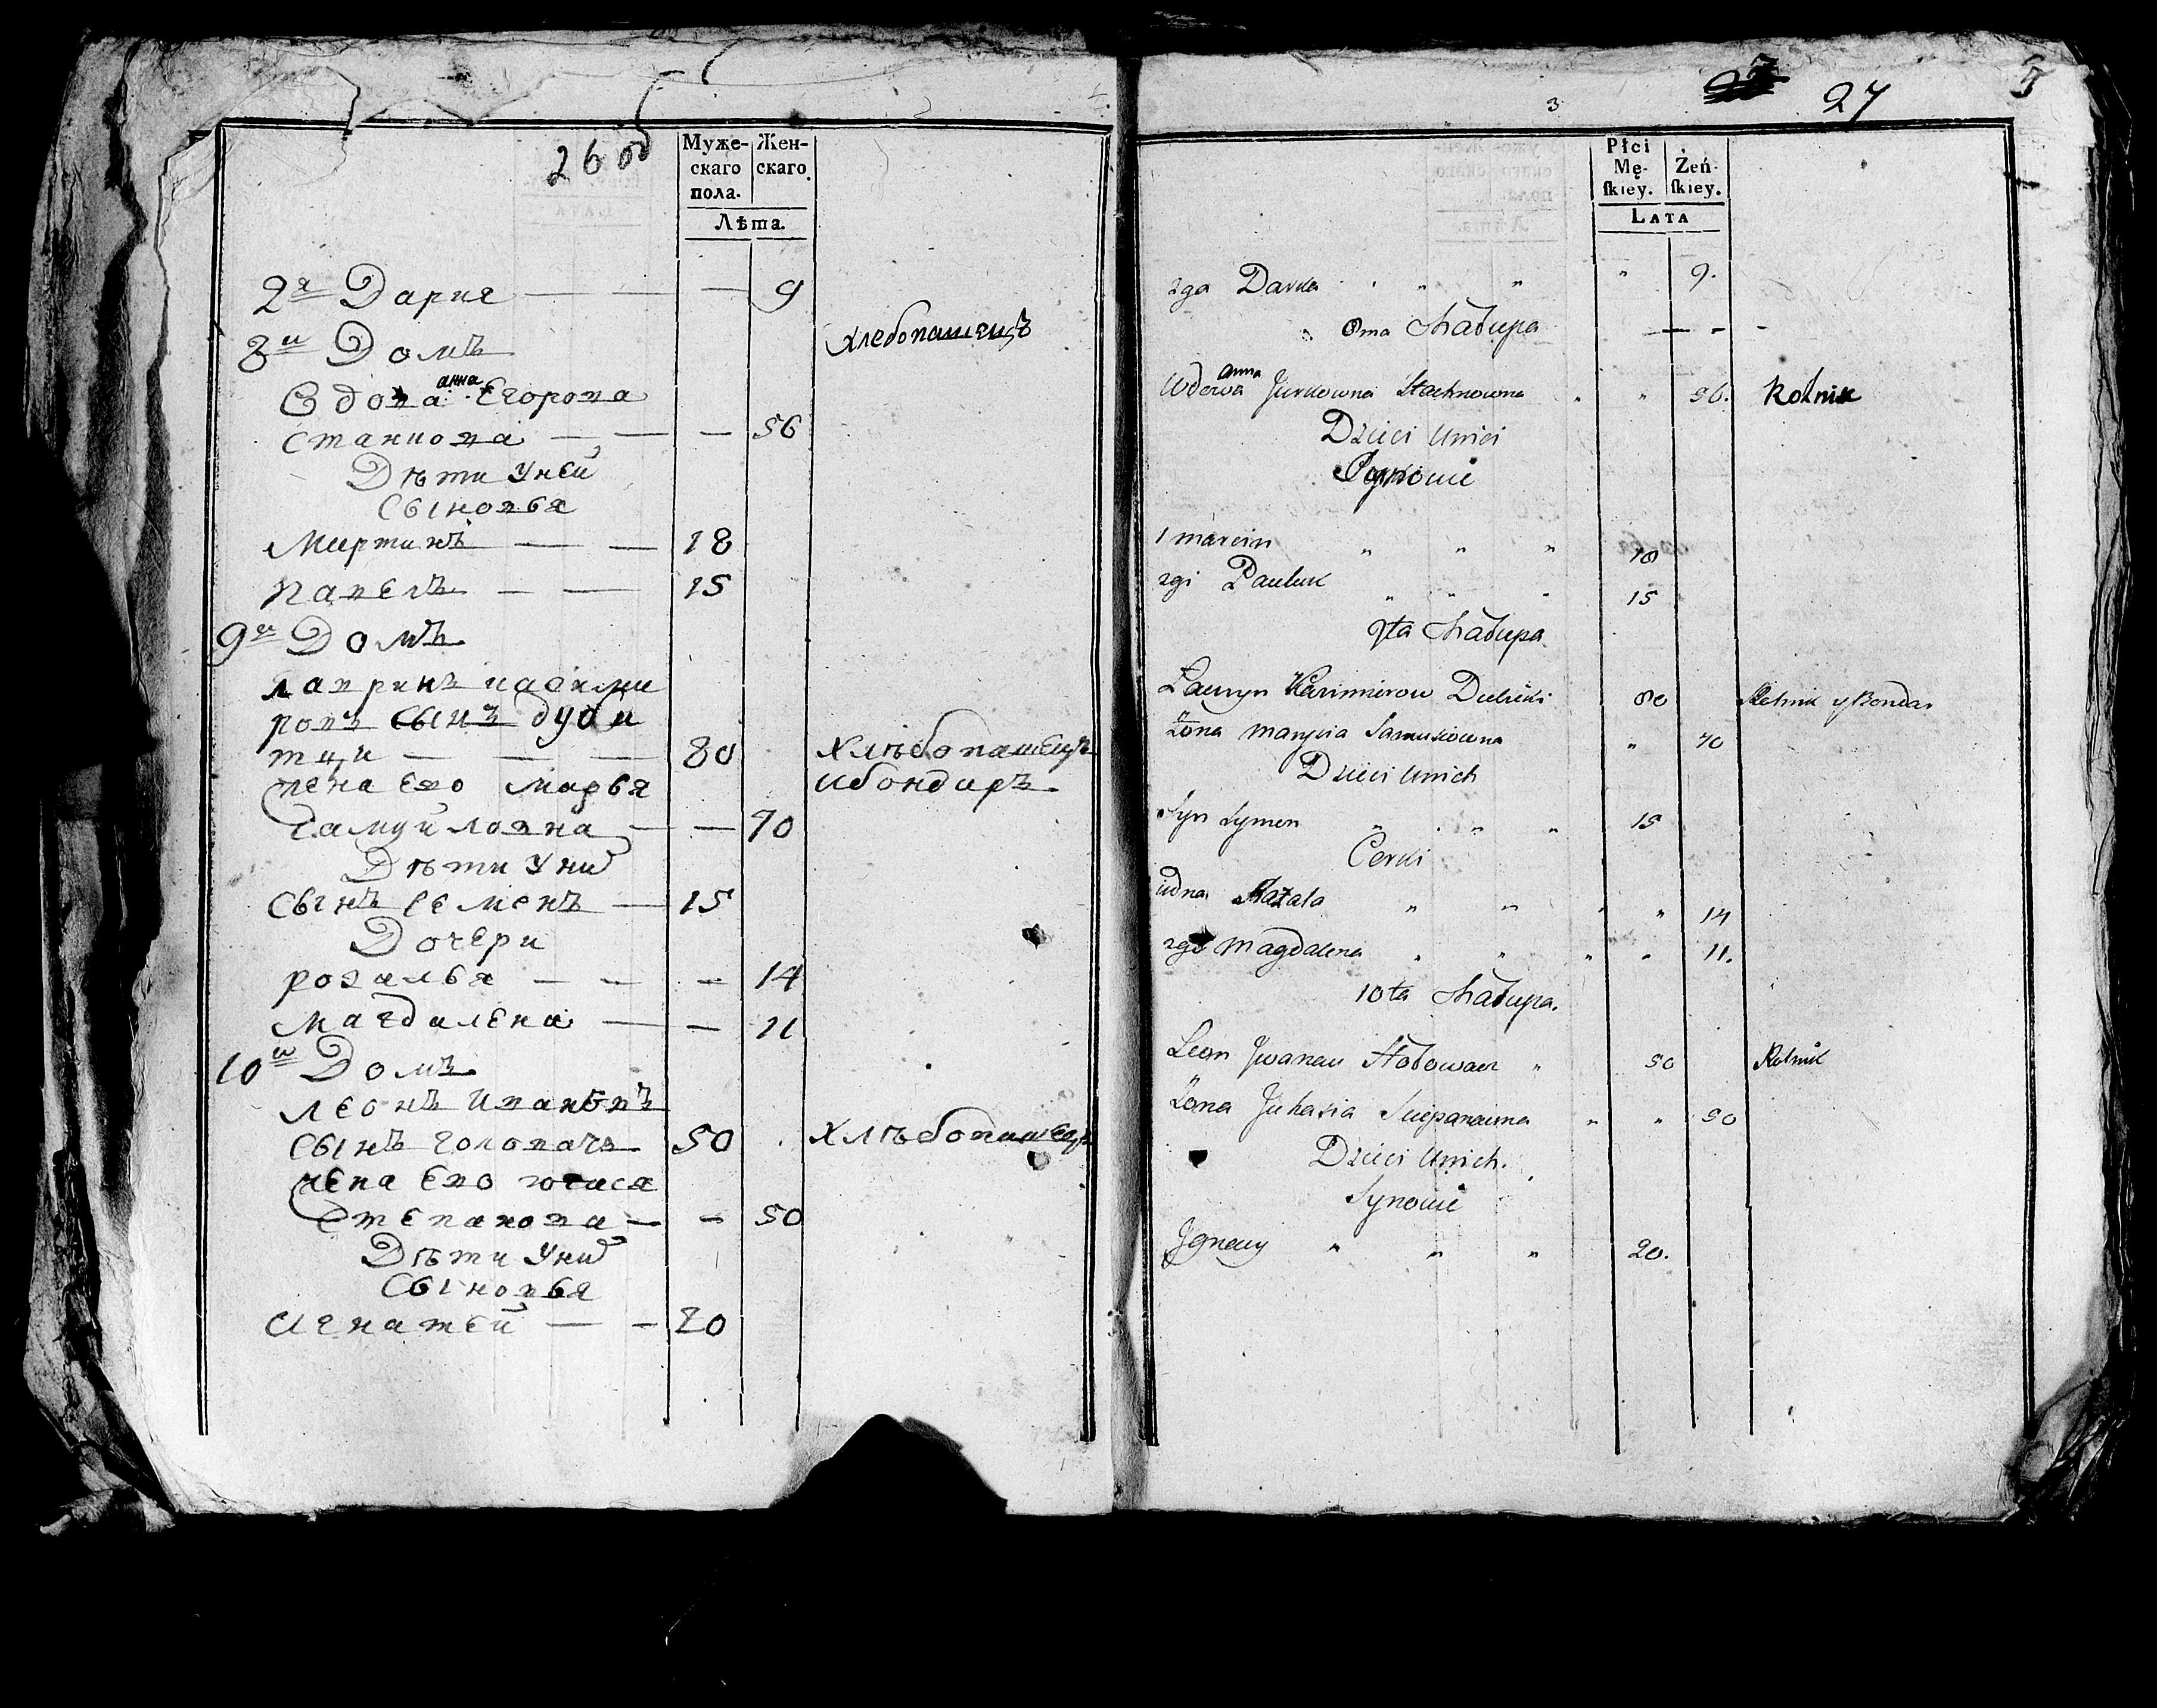 26 об
Муже-
скаго
пола.
Жен-
скаго
Лѣта.
2я Дария — — — 9
8й Домъ Хлебопашецъ
Вдова анна Егорова
Станкова — — — 56
Дѣти Уней
Сыновья
Мартинъ — — 18
Павелъ — — 15
9й Домъ
Лавринъ Казими
ровъ сынъ дуби
тци — — — 80 Хлѣбопашецъ
жена Ево Марья ибондаръ
Самуйловна — — 70
Дѣти Уних
Сынъ Семенъ — 15
Дочери
Розалья — — — 14
Магдалена — — 11
10й Домъ
Леонъ Иваневъ
сынъ Головачъ 50 Хлѣбопашецъ
жена Ево югася
Степанова — — 50
Дѣти Уних
Сыновья
Игнатей — — 20
3
27
Płci
Mę-
skiey.
Żeń-
skiey.
LATA
2ga Darka " " " 9.
8ma Chałupa — - -
Wdowa anna Jurkowna Stachnowna " " 56. Rolnik
Dzieci Uniei
Synowie
1 marcin " " " 18
2gi Pauluk " " " 15
9ta Chałupa
Ławryn Kazimierow Dubicki 80 Rolnik y Bondar
Żona Maryia Samusiowna " 70
Dzieci Unich
Syn Symon " " " 15
Cerki
iedna Razala " " " " 14
2ga Magdalena " " " " 11.
10ta Chałupa.
Leon Jwaneu Hołowacz " 50 Rolnik
Żona Juhasia Sciepanauna " " 50
Dzieci Unich.
Synowie
Jgnacy " " " 20.